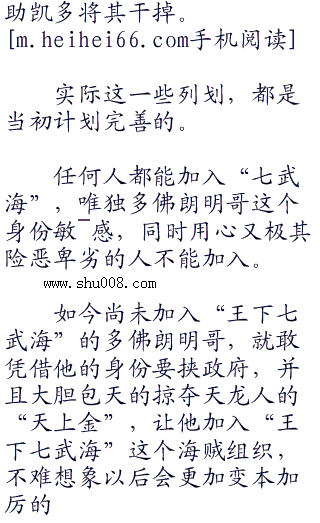 助凯多将其干掉。
[m.heihei66.com手机阅读]
实际这一些列划，都是
当初计划完善的。
任何人都能加入“七武
海”，唯独多佛朗明哥这个
身份敏¯感，同时用心又极其
险恶卑劣的人不能加入。
www.shu008.com
如今尚未加入“王下七
武海”的多佛朗明哥，就敢
凭借他的身份要挟政府，并
且大胆包天的掠夺天龙人的
“天上金”，让他加入“王
下七武海”这个海贼组织，
不难想象以后会更加变本加
厉的